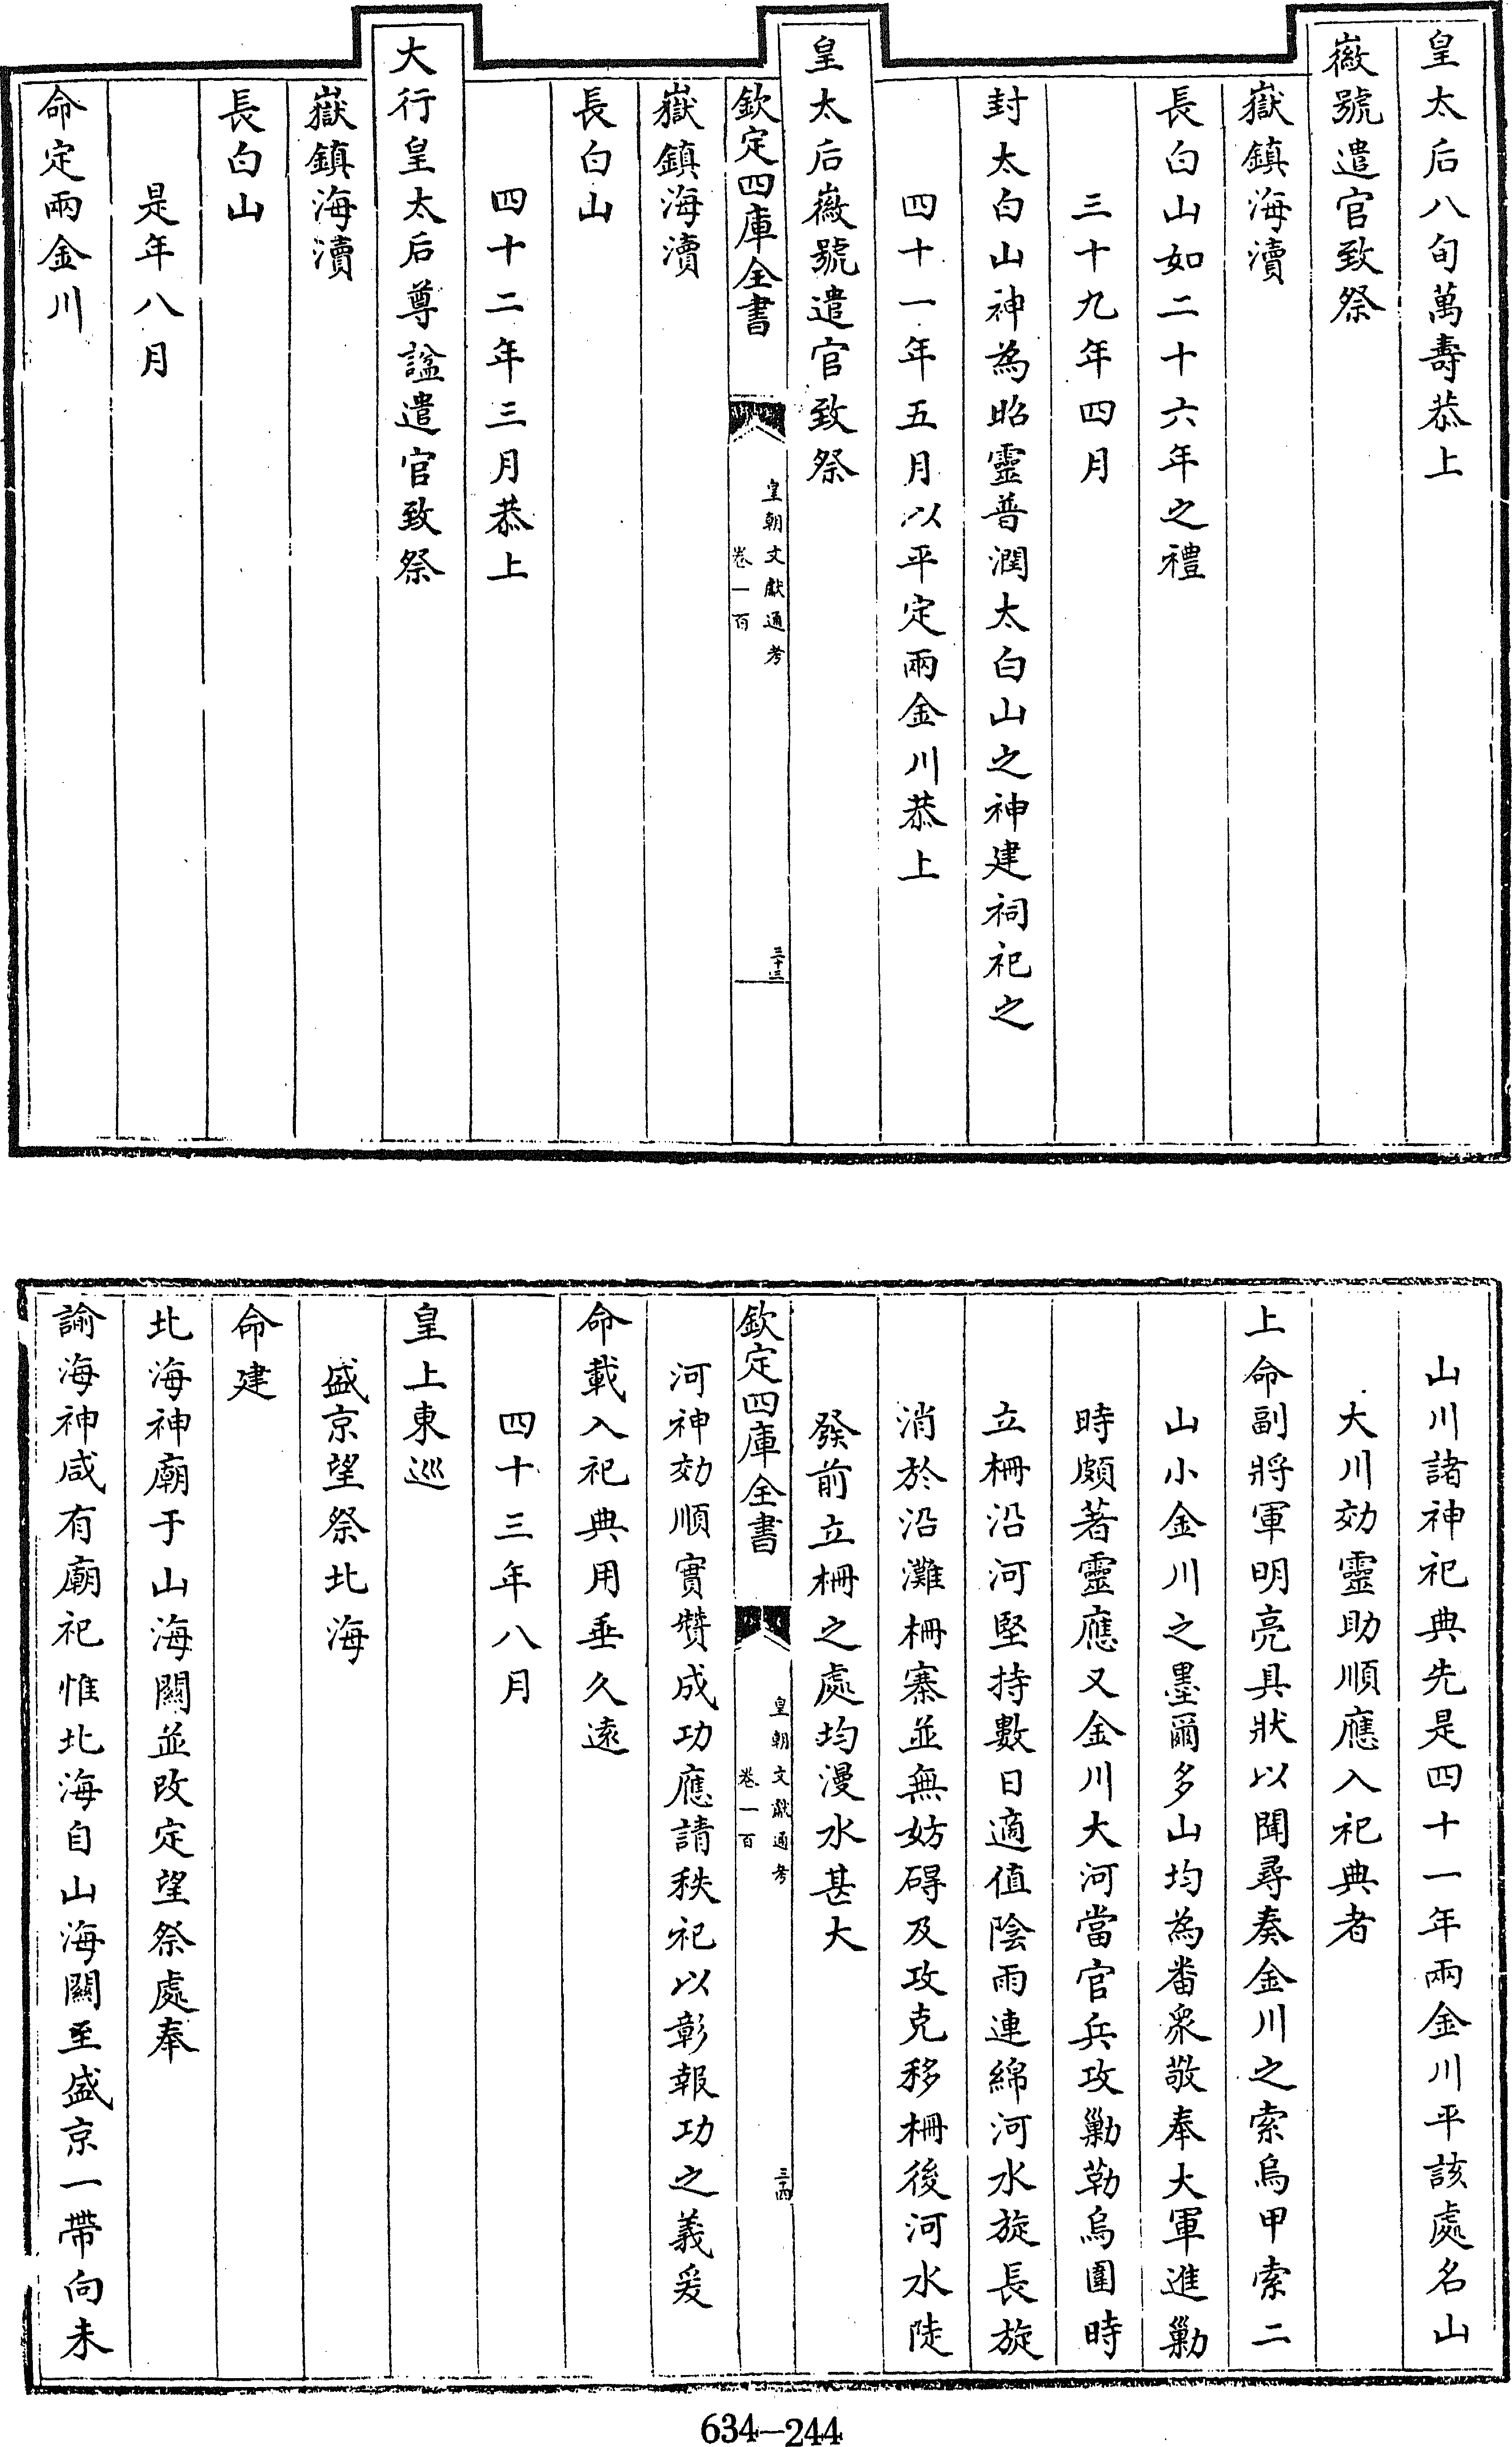 皇太后八旬萬壽恭上
徽號遣官致祭
嶽鎮海瀆
長白山如二十六年之禮
三十九年四月
封太白山神為昭靈普潤太白山之神建祠祀之
四十一年五月以平定兩金川恭上
皇太后徽號遣官致祭
欽定四庫全書
皇朝文獻通考
卷一百
三十三
嶽鎮海瀆
長白山
四十二年三月恭上
大行皇太后尊諡遣官致祭
嶽鎮海瀆
長白山
是年八月
命定兩金川
山川諸神祀典先是四十一年兩金川平該處名山
大川効靈助順應入祀典者
上命副將軍明亮具狀以聞尋奏金川之索烏甲索二
山小金川之墨爾多山均為番衆敬奉大軍進勦
時頗著靈應又金川大河當官兵攻勦勒烏圍時
立柵沿河堅持數日適值陰雨連綿河水旋長旋
消於沿灘柵寨並無妨碍及攻克移柵後河水陡
發前立柵之處均漫水甚大
欽定四庫全書
皇朝文獻通考
卷一百
三十四
河神効順實贊成功應請秩祀以彰報功之義爰
命載入祀典用垂久遠
四十三年八月
皇上東巡
盛京望祭北海
命建
北海神廟于山海關並改定望祭處奉
諭海神咸有廟祀惟北海自山海關至盛京一帶向未
634—244